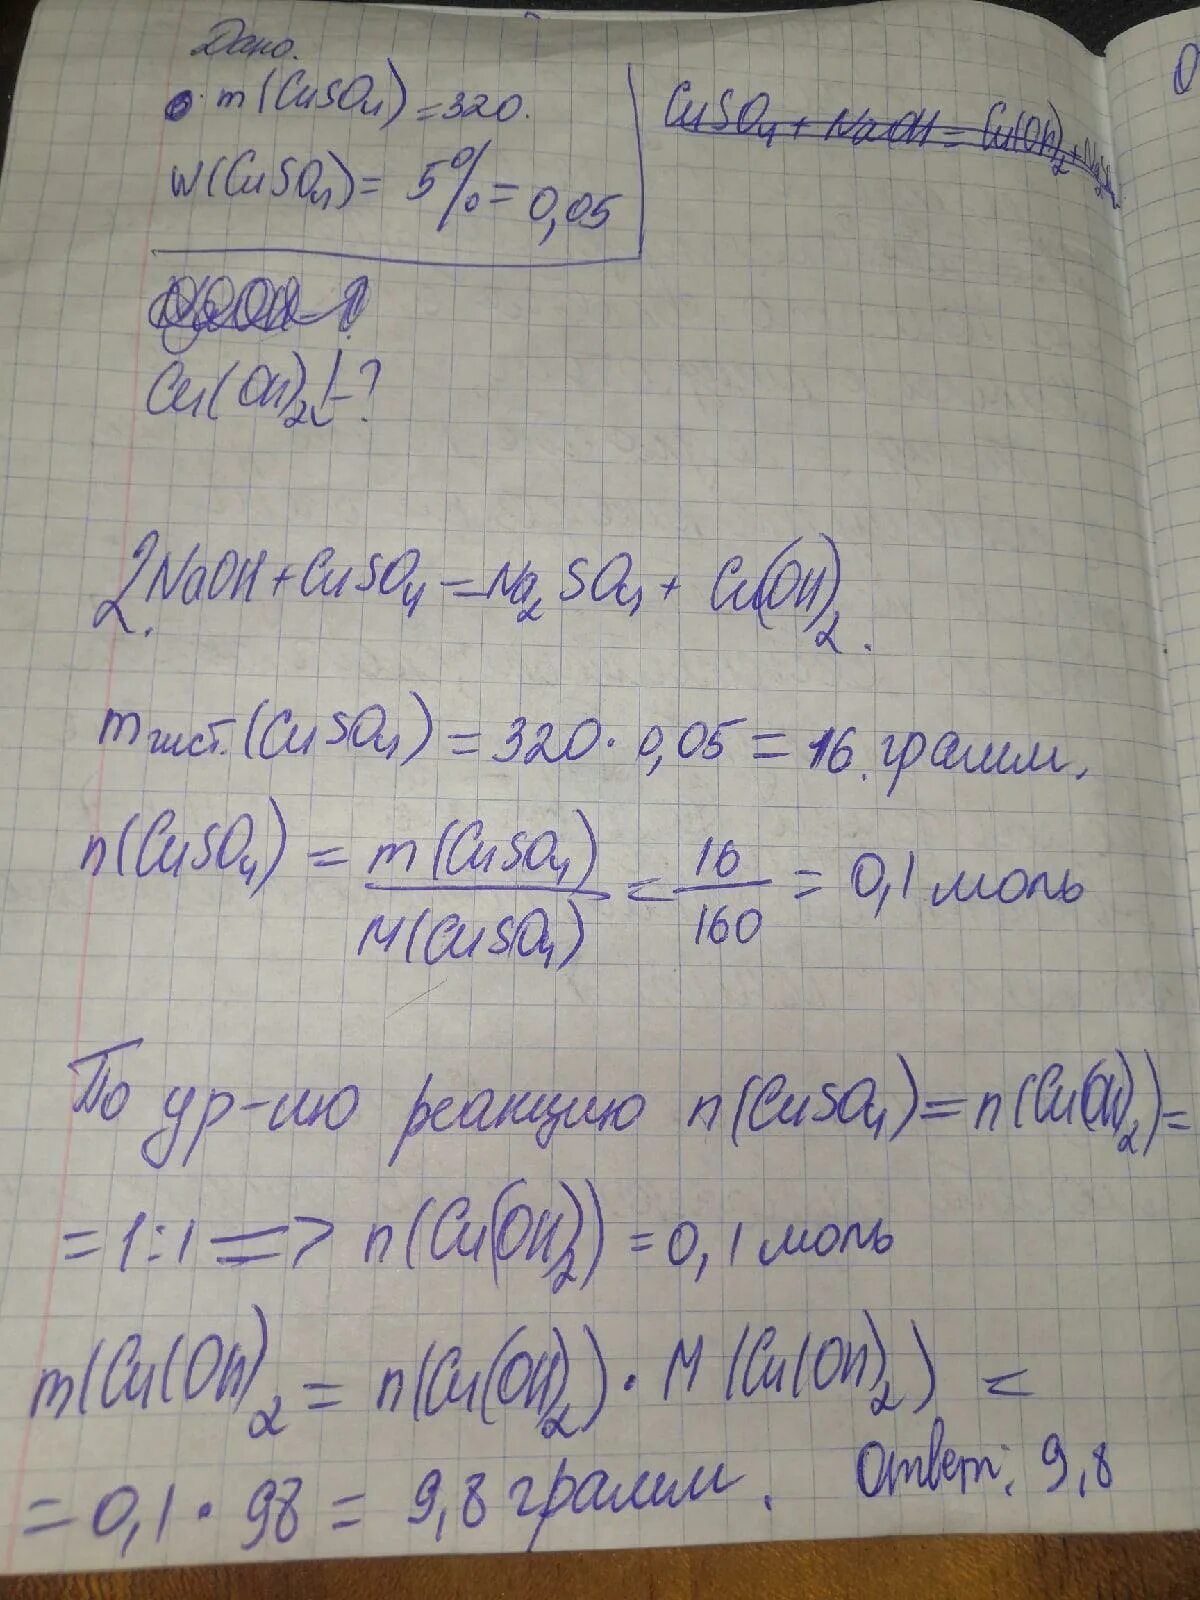 Дано.
m(CuSO₄) = 320.
CuSO₄ + NaOH = Cu(OH)₂ +
W(CuSO₄) = 5% = 0,05
Cu(OH)₂↓ - ?
2NaOH + CuSO₄ = Na₂SO₄ + Cu(OH)₂.
m чист. (CuSO₄) = 320 · 0,05 = 16 грамм.
n(CuSO₄) = m(CuSO₄) / M(CuSO₄) = 16 / 160 = 0,1 моль
По ур-ию реакцию n(CuSO₄) = n(Cu(OH)₂) =
= 1:1 => n(Cu(OH)₂) = 0,1 моль
m(Cu(OH)₂ = n(Cu(OH)₂) · M(Cu(OH)₂) =
= 0,1 · 98 = 9,8 грамм. Ответ: 9,8